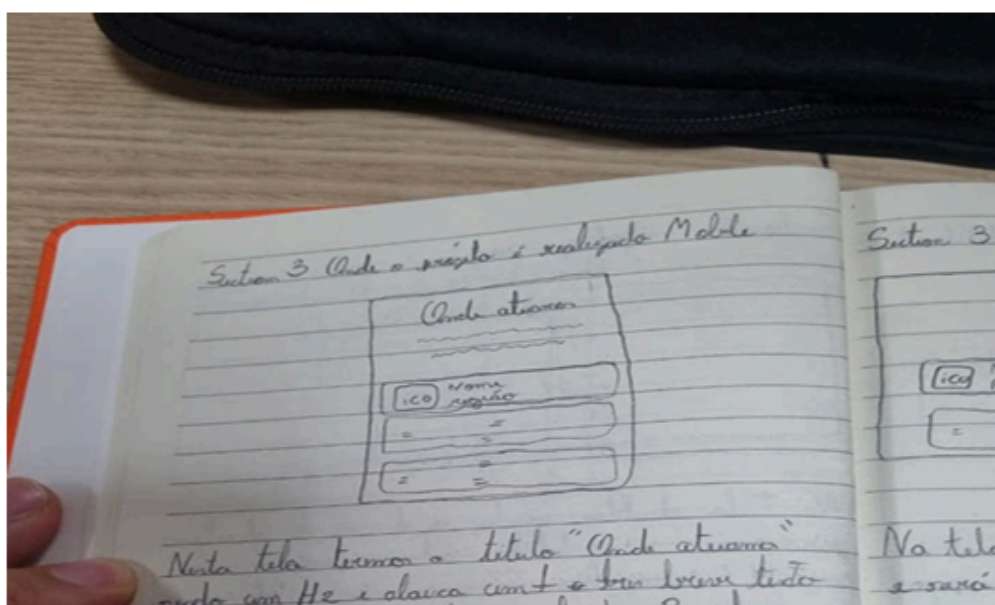 Section 3 Onde o projeto é realizado Mobile
Onde atuamos
ico Nome
região
= =
=
= =
=
Nesta tela temos o titulo "Onde atuamos"
sendo um H2 e abaixo um breve texto
Section 3
ico
=
Na tela
e